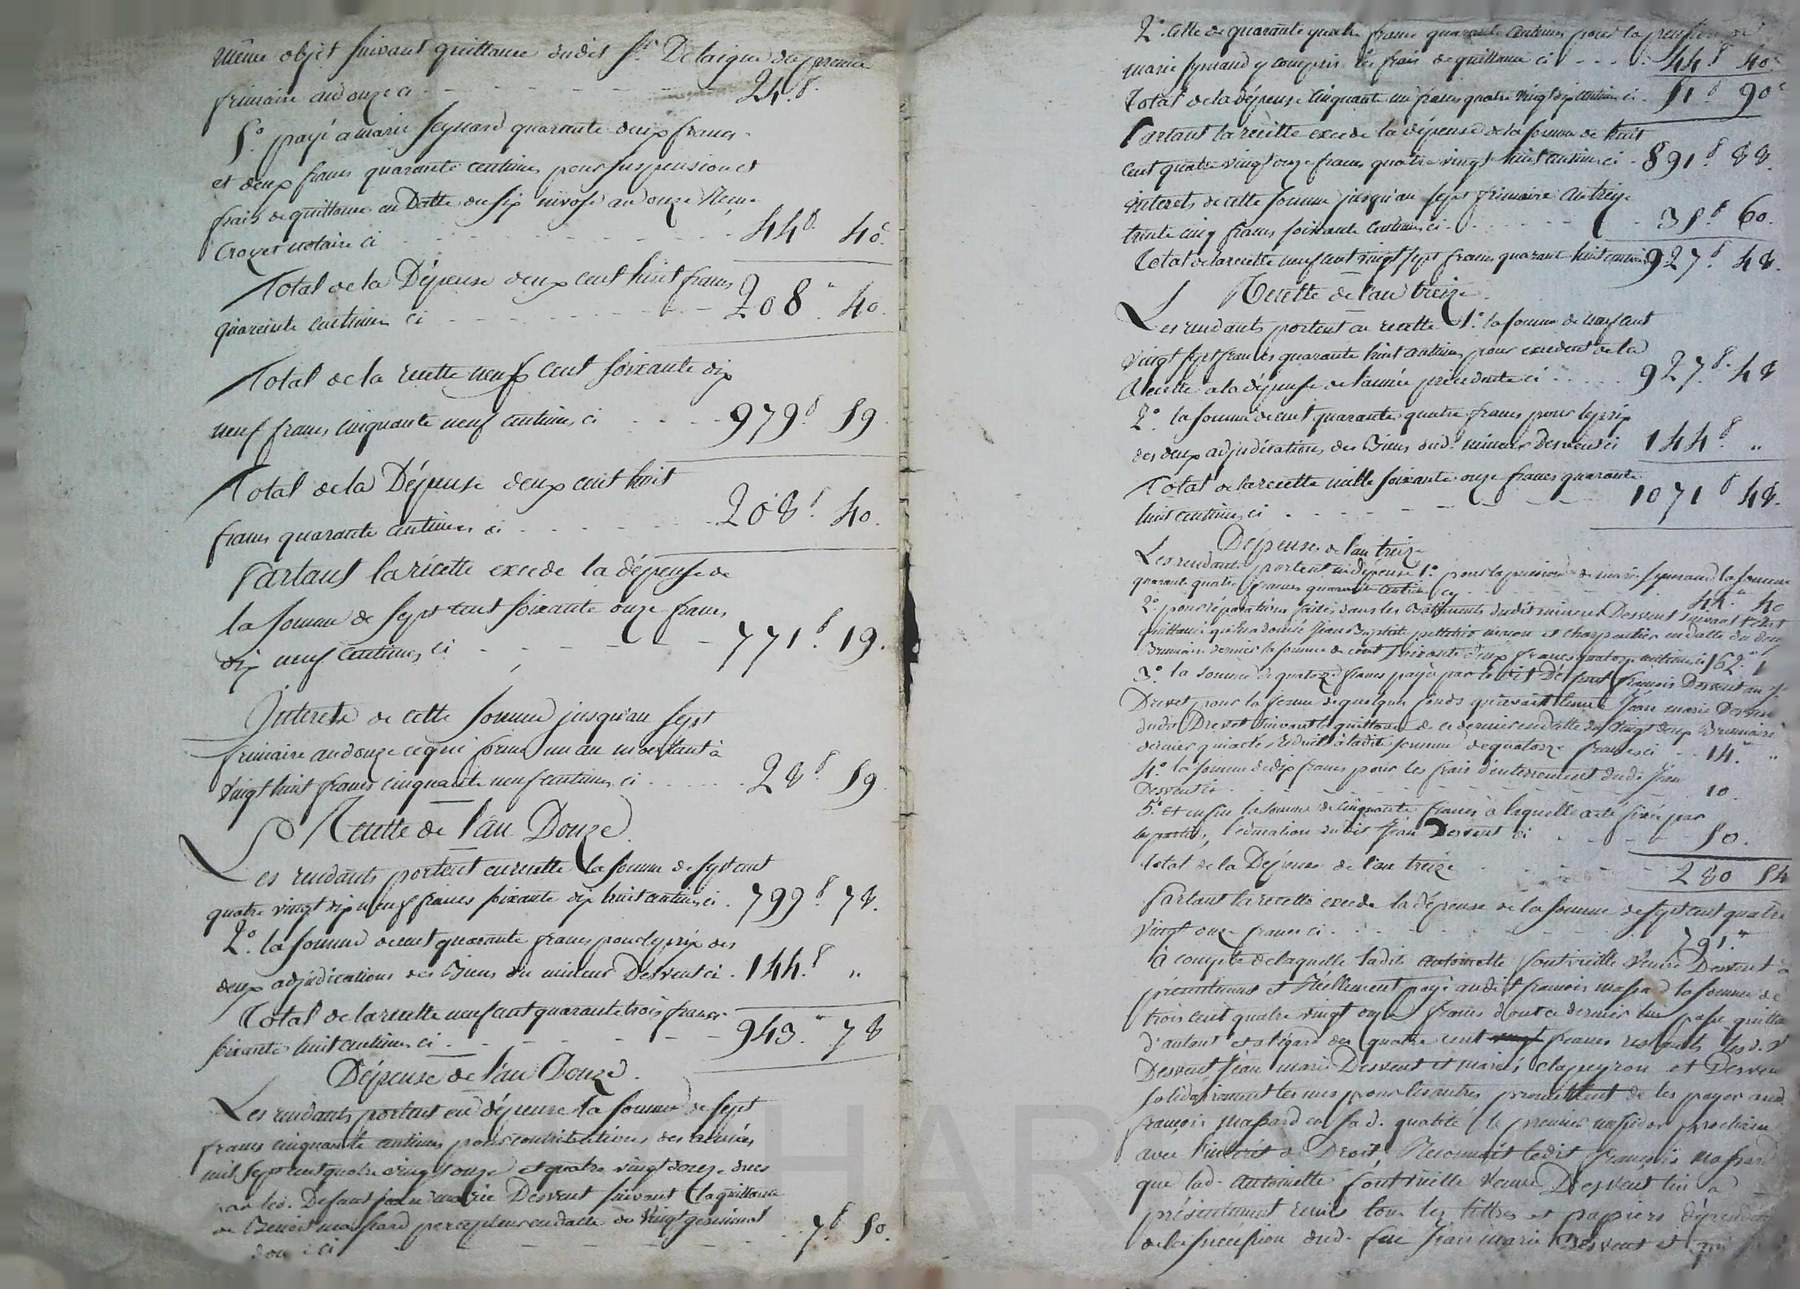 même objet suivant quittance dudit Sr. Delaigue du premier
frimaire an onze ci - - - 24 f.
5° payé a marie seymard quarante deux francs
et deux francs quarante centimes pour sa pension et
frais de quittance en datte du six nivose an onze Reçue
Croyet notaire ci - - - 44 f. 40 c.
Total de la Dépense deux cent huit francs
quarante centimes ci - - - 208. 40.
Total de la recette neuf cent soixante dix
neuf francs cinquante neuf centimes, ci - - - 979 f 59.
Total de la Dépense deux cent huit
francs quarante centimes ci - - - 208 f 40.
Partant la recette excede la dépense de
la somme de sept cent soixante onze francs
dix neuf centimes, ci - - - 771 f. 19.
Interets de cette somme jusqu'au sept
frimaire an douze ce qui forme un an montant à
vingt huit francs cinquante neuf centimes, ci - - - 28 f 59
Recette de l'an Douze
Les rendants portent en recette la somme de sept cent
quatre vingt dix neuf francs soixante dix huit centimes, ci. 799 f. 78.
2° la somme de cent quarante quatre francs pour le prix des
deux adjudications des Biens du mineur Desvent ci - 144 f. "
Total de la recette neuf cent quarante trois francs
soixante huit centimes, ci - - - 943. 78
Dépense de l'an Douze.
Les rendants portent en dépense la somme de sept
francs cinquante centimes pour contributions des années
mil sept cent quatre vingt onze et quatre vingt douze dues
par led. Defunt jean marie Desvent suivant la quittance
de Benoit massard percepteur en datte du vingt germinal
dou ci - - - 7 f 50.
2° celle de quarante quatre francs quarante centimes pour la pension de
marie seymard y compris les frais de quittance ci - - - 44 f 40 c
Total de la dépense cinquante un francs quatre vingt dix centimes ci. 51 f 90 c
Partant la recette excede la dépense de la somme de huit
cent quatre vingt onze francs quatre vingt huit centimes ci - 891 f 88.
interets de cette somme jusqu'au sept frimaire an treize
trente cinq francs soixante centimes, ci - - - 35 f 60.
Total de la recette neuf cent vingt sept francs quarante huit centimes 927 f. 48.
Recette de l'an treize.
Les rendants portent en recette 1° la somme de neuf cent
vingt sept francs quarante huit centimes pour excedent de la
Recette a la dépense de l'année précédente ci - - - 927 f. 48
2° la somme de cent quarante quatre francs pour le prix
des deux adjudications des Biens dud. mineur Desvent ci 144 f "
Total de la recette mille soixante onze francs quarante
huit centimes, ci - - - 1071 f 48.
Dépenses de l'an treize
Les rendants portent en dépense 1° pour la pension de marie seymard la somme
quarante quatre francs quarante centimes cy - - - 44 40
2° pour réparations faites dans les Batiments dudit mineur Desvent suivant l'état
quittancé qu'en a donné Jean Baptiste maçon et charpentier en datte du deux
Brumaire dernier la somme de cent soixante deux francs quatorze centimes ci 162 f 1
3° la somme de quatorze francs payé par ledit Défunt francois Desvent au Sr
Drevet pour la ferme de quelques fonds qu'avait tenu Jean marie Desvent
dudit Drevet suivant la quittance de ce dernier en datte du vingt deux Brumaire
dernier qui a été réduit à ladite somme de quatorze francs ci - - 14. "
4° la somme de dix francs pour les frais d'enterrement dudit Jean
Desvent ci - - - 10.
5° et enfin la somme de cinquante francs à laquelle a été fixé par
les parties, l'éducation dudit Jean Desvent ci - - - 50.
Total de la Dépense de l'an treize - - - 280 54
Partant la recette excede la dépense de la somme de sept cent quatre
vingt onze francs ci - - - 791. "
à compte de laquelle ladite antoinette fontvieille veuve Desvent a
présentement et Réellement payé audit francois massard la somme de
trois cent quatre vingt onze francs dont ce dernier lui passe quittance
d'autant et a l'égard des quatre cent francs restants lesd. Ve
Desvent Jean marie Desvent et mariés clapeyron et Desvent
solidairement les uns pour les autres promettent de les payer aud.
francois massard en sad. qualité le premier nivose prochain
avec l'intérêt de Droit Reconnait ledit francois massard
que lad. antoinette fontvieille veuve Desvent lui a
présentement remis tous les tittres et papiers dépendants
de la succession dud. feu Jean marie Desvent et qui